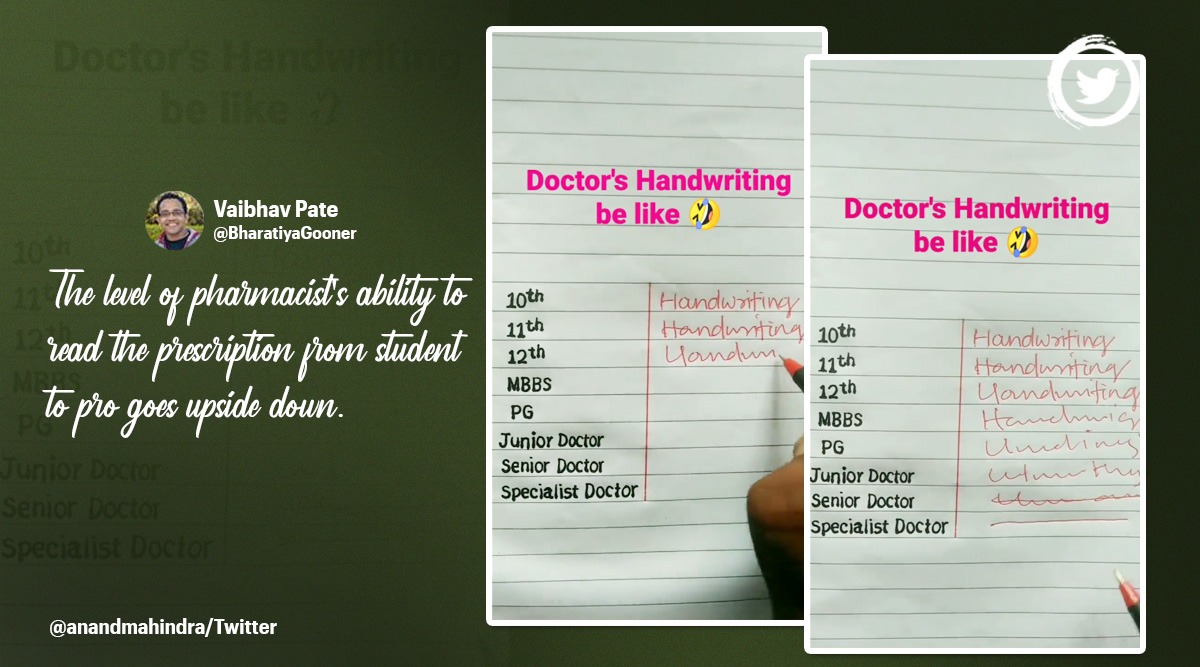 Doctor's Handwriting
be like
10th
11th
12th
MBBS
PG
Junior Doctor
Senior Doctor
Specialist Doctor
Vaibhav Pate
@BharatiyaGooner
The level of pharmacist's ability to
read the prescription from student
to pro goes upside down.
@anandmahindra/Twitter
Doctor's Handwriting
be like 🤣
10th Handwriting
11th Handwriting
12th
MBBS
PG
Junior Doctor
Senior Doctor
Specialist Doctor
Doctor's Handwriting
be like 🤣
10th Handwriting
11th Handwriting
12th
MBBS
PG
Junior Doctor
Senior Doctor
Specialist Doctor